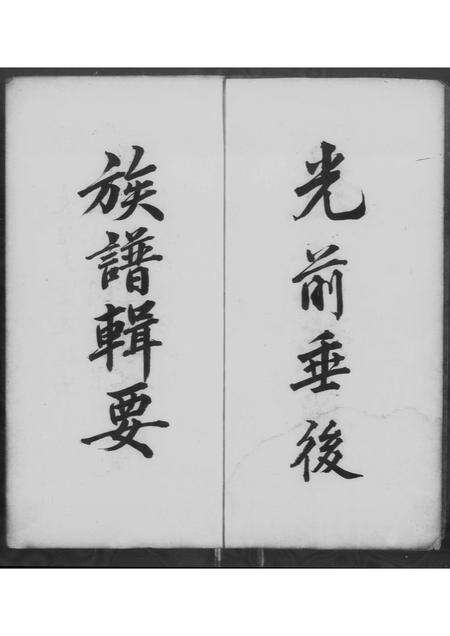 光前垂後
族譜輯要